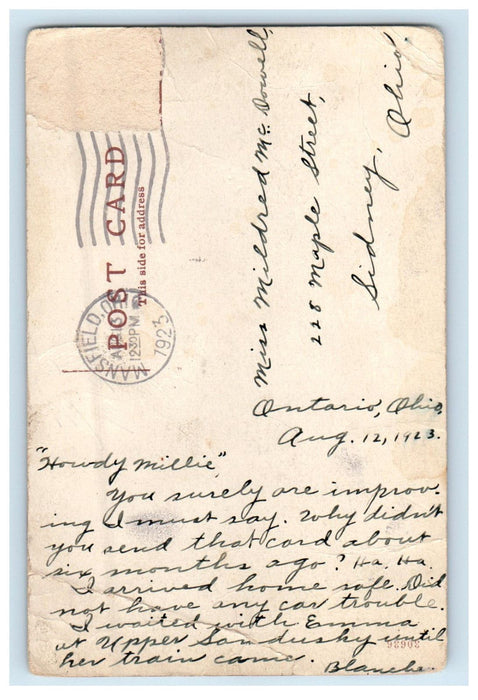 POST CARD
This side for address
MANSFIELD, OHIO
AUG 13
12 30 PM
1923
Miss Mildred McDowell,
228 Maple Street,
Sidney,
Ohio
Ontario, Ohio,
Aug. 12, 1923.
"Howdy Millie",
You surely are improv-
ing I must say. Why didn't
you send that card about
six months ago? Ha. Ha.
I arrived home safe. Did
not have any car trouble.
I waited with Emma
at Upper Sandusky until
her train came.
Blanche.
30636